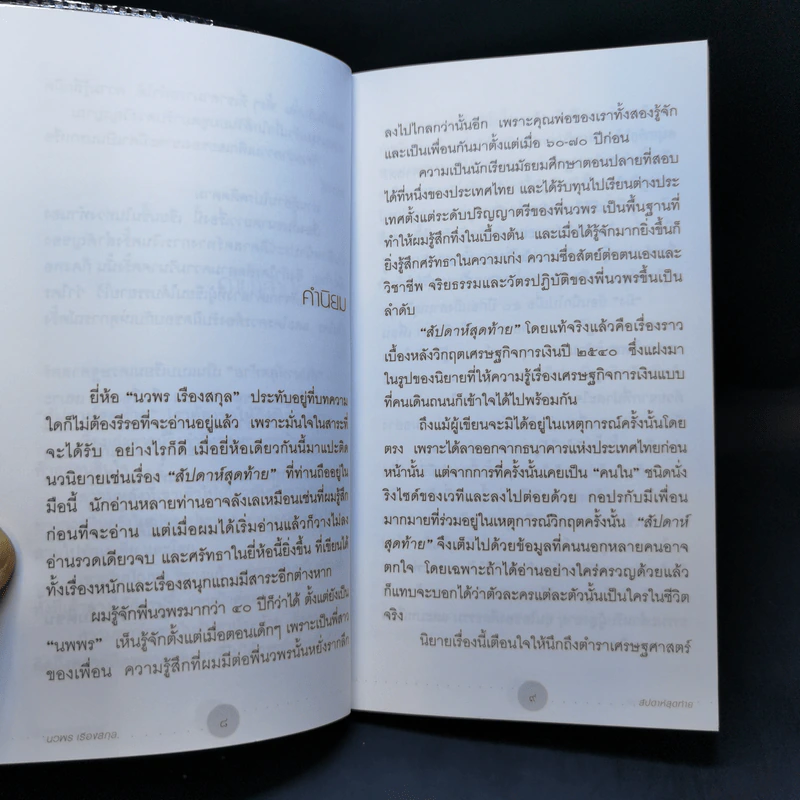 คำนิยม
ยี่ห้อ “นวพร เรืองสกุล” ประทับอยู่ที่บทความ
ใดก็ไม่ต้องรีรอที่จะอ่านอยู่แล้ว เพราะมั่นใจในสาระที่
จะได้รับ อย่างไรก็ดี เมื่อยี่ห้อเดียวกันนี้มาแปะติด
นวนิยายเช่นเรื่อง “สัปดาห์สุดท้าย” ที่ท่านถืออยู่ใน
มือนี้ นักอ่านหลายท่านอาจลังเลเหมือนเช่นที่ผมรู้สึก
ก่อนที่จะอ่าน แต่เมื่อผมได้เริ่มอ่านแล้วก็วางไม่ลง
อ่านรวดเดียวจบ และศรัทธาในยี่ห้อนี้ยิ่งขึ้น ที่เขียนได้
ทั้งเรื่องหนักและเรื่องสนุกแถมมีสาระอีกต่างหาก
ผมรู้จักพี่นวพรมากว่า ๔๐ ปีก็ว่าได้ ตั้งแต่ยังเป็น
“นพพร” เห็นรู้จักตั้งแต่เมื่อตอนเด็กๆ เพราะเป็นพี่สาว
ของเพื่อน ความรู้สึกที่ผมมีต่อพี่นวพรนั้นหยั่งรากลึก
๘
นวพร เรืองสกุล
ลงไปไกลกว่านั้นอีก เพราะคุณพ่อของเราทั้งสองรู้จัก
และเป็นเพื่อนกันมาตั้งแต่เมื่อ ๖๐-๗๐ ปีก่อน
ความเป็นนักเรียนมัธยมศึกษาตอนปลายที่สอบ
ได้ที่หนึ่งของประเทศไทย และได้รับทุนไปเรียนต่างประ
เทศตั้งแต่ระดับปริญญาตรีของพี่นวพร เป็นพื้นฐานที่
ทำให้ผมรู้สึกทึ่งในเบื้องต้น และเมื่อได้รู้จักมากยิ่งขึ้นก็
ยิ่งรู้สึกศรัทธาในความเก่ง ความซื่อสัตย์ต่อตนเองและ
วิชาชีพ จริยธรรมและวัตรปฏิบัติของพี่นวพรขึ้นเป็น
ลำดับ
“สัปดาห์สุดท้าย” โดยแท้จริงแล้วคือเรื่องราว
เบื้องหลังวิกฤตเศรษฐกิจการเงินปี ๒๕๔๐ ซึ่งแฝงมา
ในรูปของนิยายที่ให้ความรู้เรื่องเศรษฐกิจการเงินแบบ
ที่คนเดินถนนก็เข้าใจได้ไปพร้อมกัน
ถึงแม้ผู้เขียนจะมิได้อยู่ในเหตุการณ์ครั้งนั้นโดย
ตรง เพราะได้ลาออกจากธนาคารแห่งประเทศไทยก่อน
หน้านั้น แต่จากการที่ครั้งนั้นเคยเป็น “คนใน” ชนิดนั่ง
ริงไซด์ของเวทีและลงไปต่อยด้วย กอปรกับมีเพื่อน
มากมายที่ร่วมอยู่ในเหตุการณ์วิกฤตครั้งนั้น “สัปดาห์
สุดท้าย” จึงเต็มไปด้วยข้อมูลที่คนนอกหลายคนอาจ
ตกใจ โดยเฉพาะถ้าได้อ่านอย่างใคร่ครวญด้วยแล้ว
ก็แทบจะบอกได้ว่าตัวละครแต่ละตัวนั้นเป็นใครในชีวิต
จริง
นิยายเรื่องนี้เตือนใจให้นึกถึงตำราเศรษฐศาสตร์
๙
สัปดาห์สุดท้าย